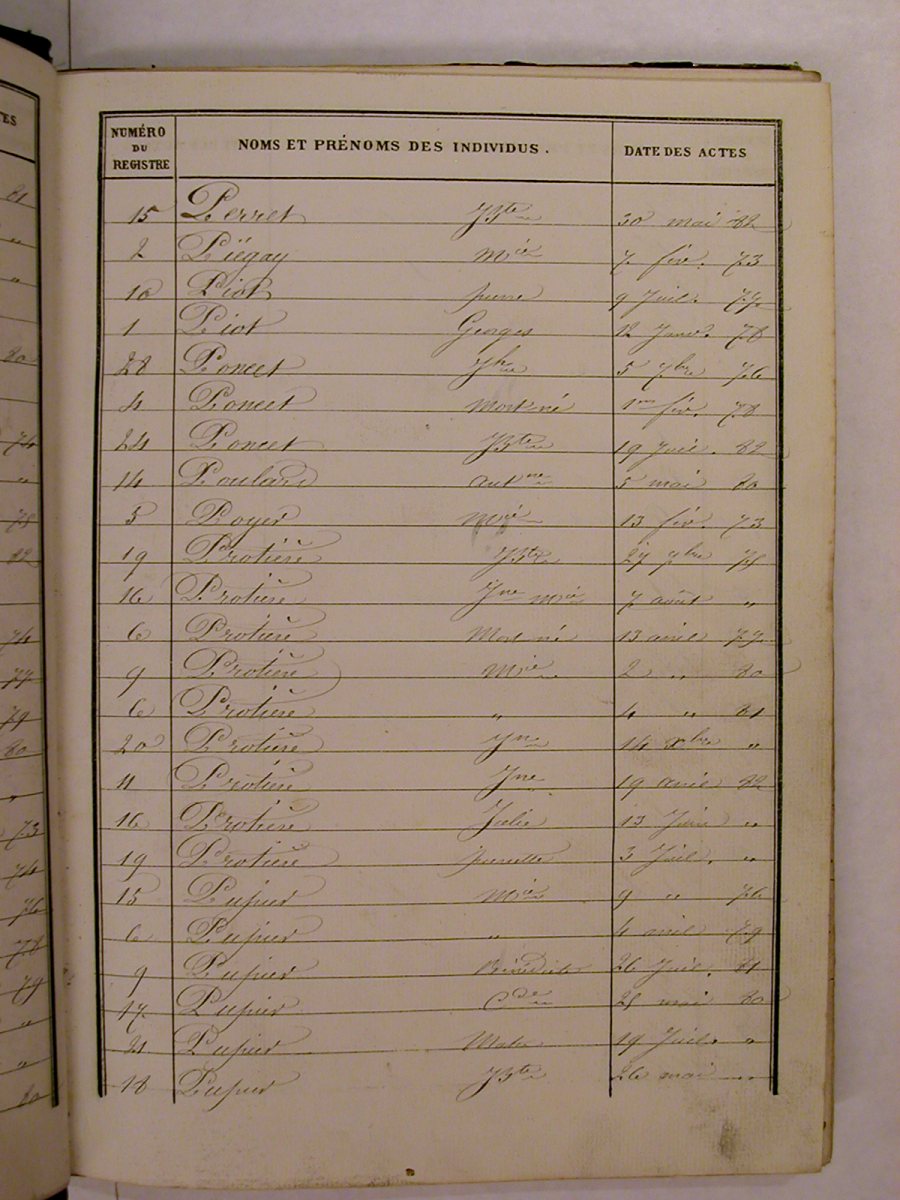 NUMÉRO DU REGISTRE NOMS ET PRÉNOMS DES INDIVIDUS. DATE DES ACTES
15 Perret JBte 30 mai 82
2 Piégay Mie 7 fév. 73
10 Piot pierre 9 Juil. 77
1 Piot Georges 12 Janv. 78
28 Poncet Jh 5 7bre 76
4 Poncet Mort né 1er fév. 78
24 Poncet JBte 19 Juil. 82
14 Poulard Antne 5 mai 80
5 Royer Mie 13 fév. 73
19 Protière JBte 27 7bre 75
16 Protière Jne Mie 7 août "
6 Protière Mort né 13 avril 77
9 Protière Mie 2 " 80
6 Protière " 4 " 81
20 Protière Jn 14 8bre "
11 Protière Jne 19 avril 82
16 Protière Julie 13 Juin "
19 Protière pierrette 3 Juil. "
15 Pupier Mie 9 " 76
6 Pupier " 4 avril 79
9 Pupier Bénédicte 26 Juil. 81
17 Pupier Cde 28 mai 80
21 Pupier 19 Juil. "
18 Pupier JBte 26 mai "
ES
81
"
"
80
74
"
78
82
74
77
79
80
"
73
74
76
78
79
"
"
80